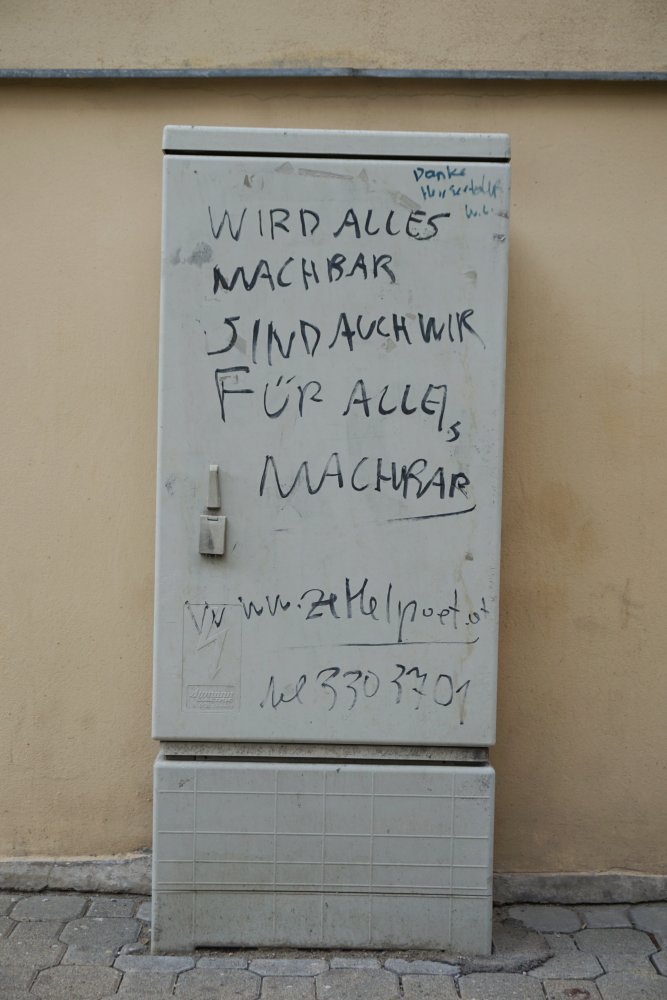 Danke
WIRD ALLES
MACHBAR
SIND AUCH WIR
FÜR ALLES
MACHBAR
www.zettelpoet.at
tel 3303701